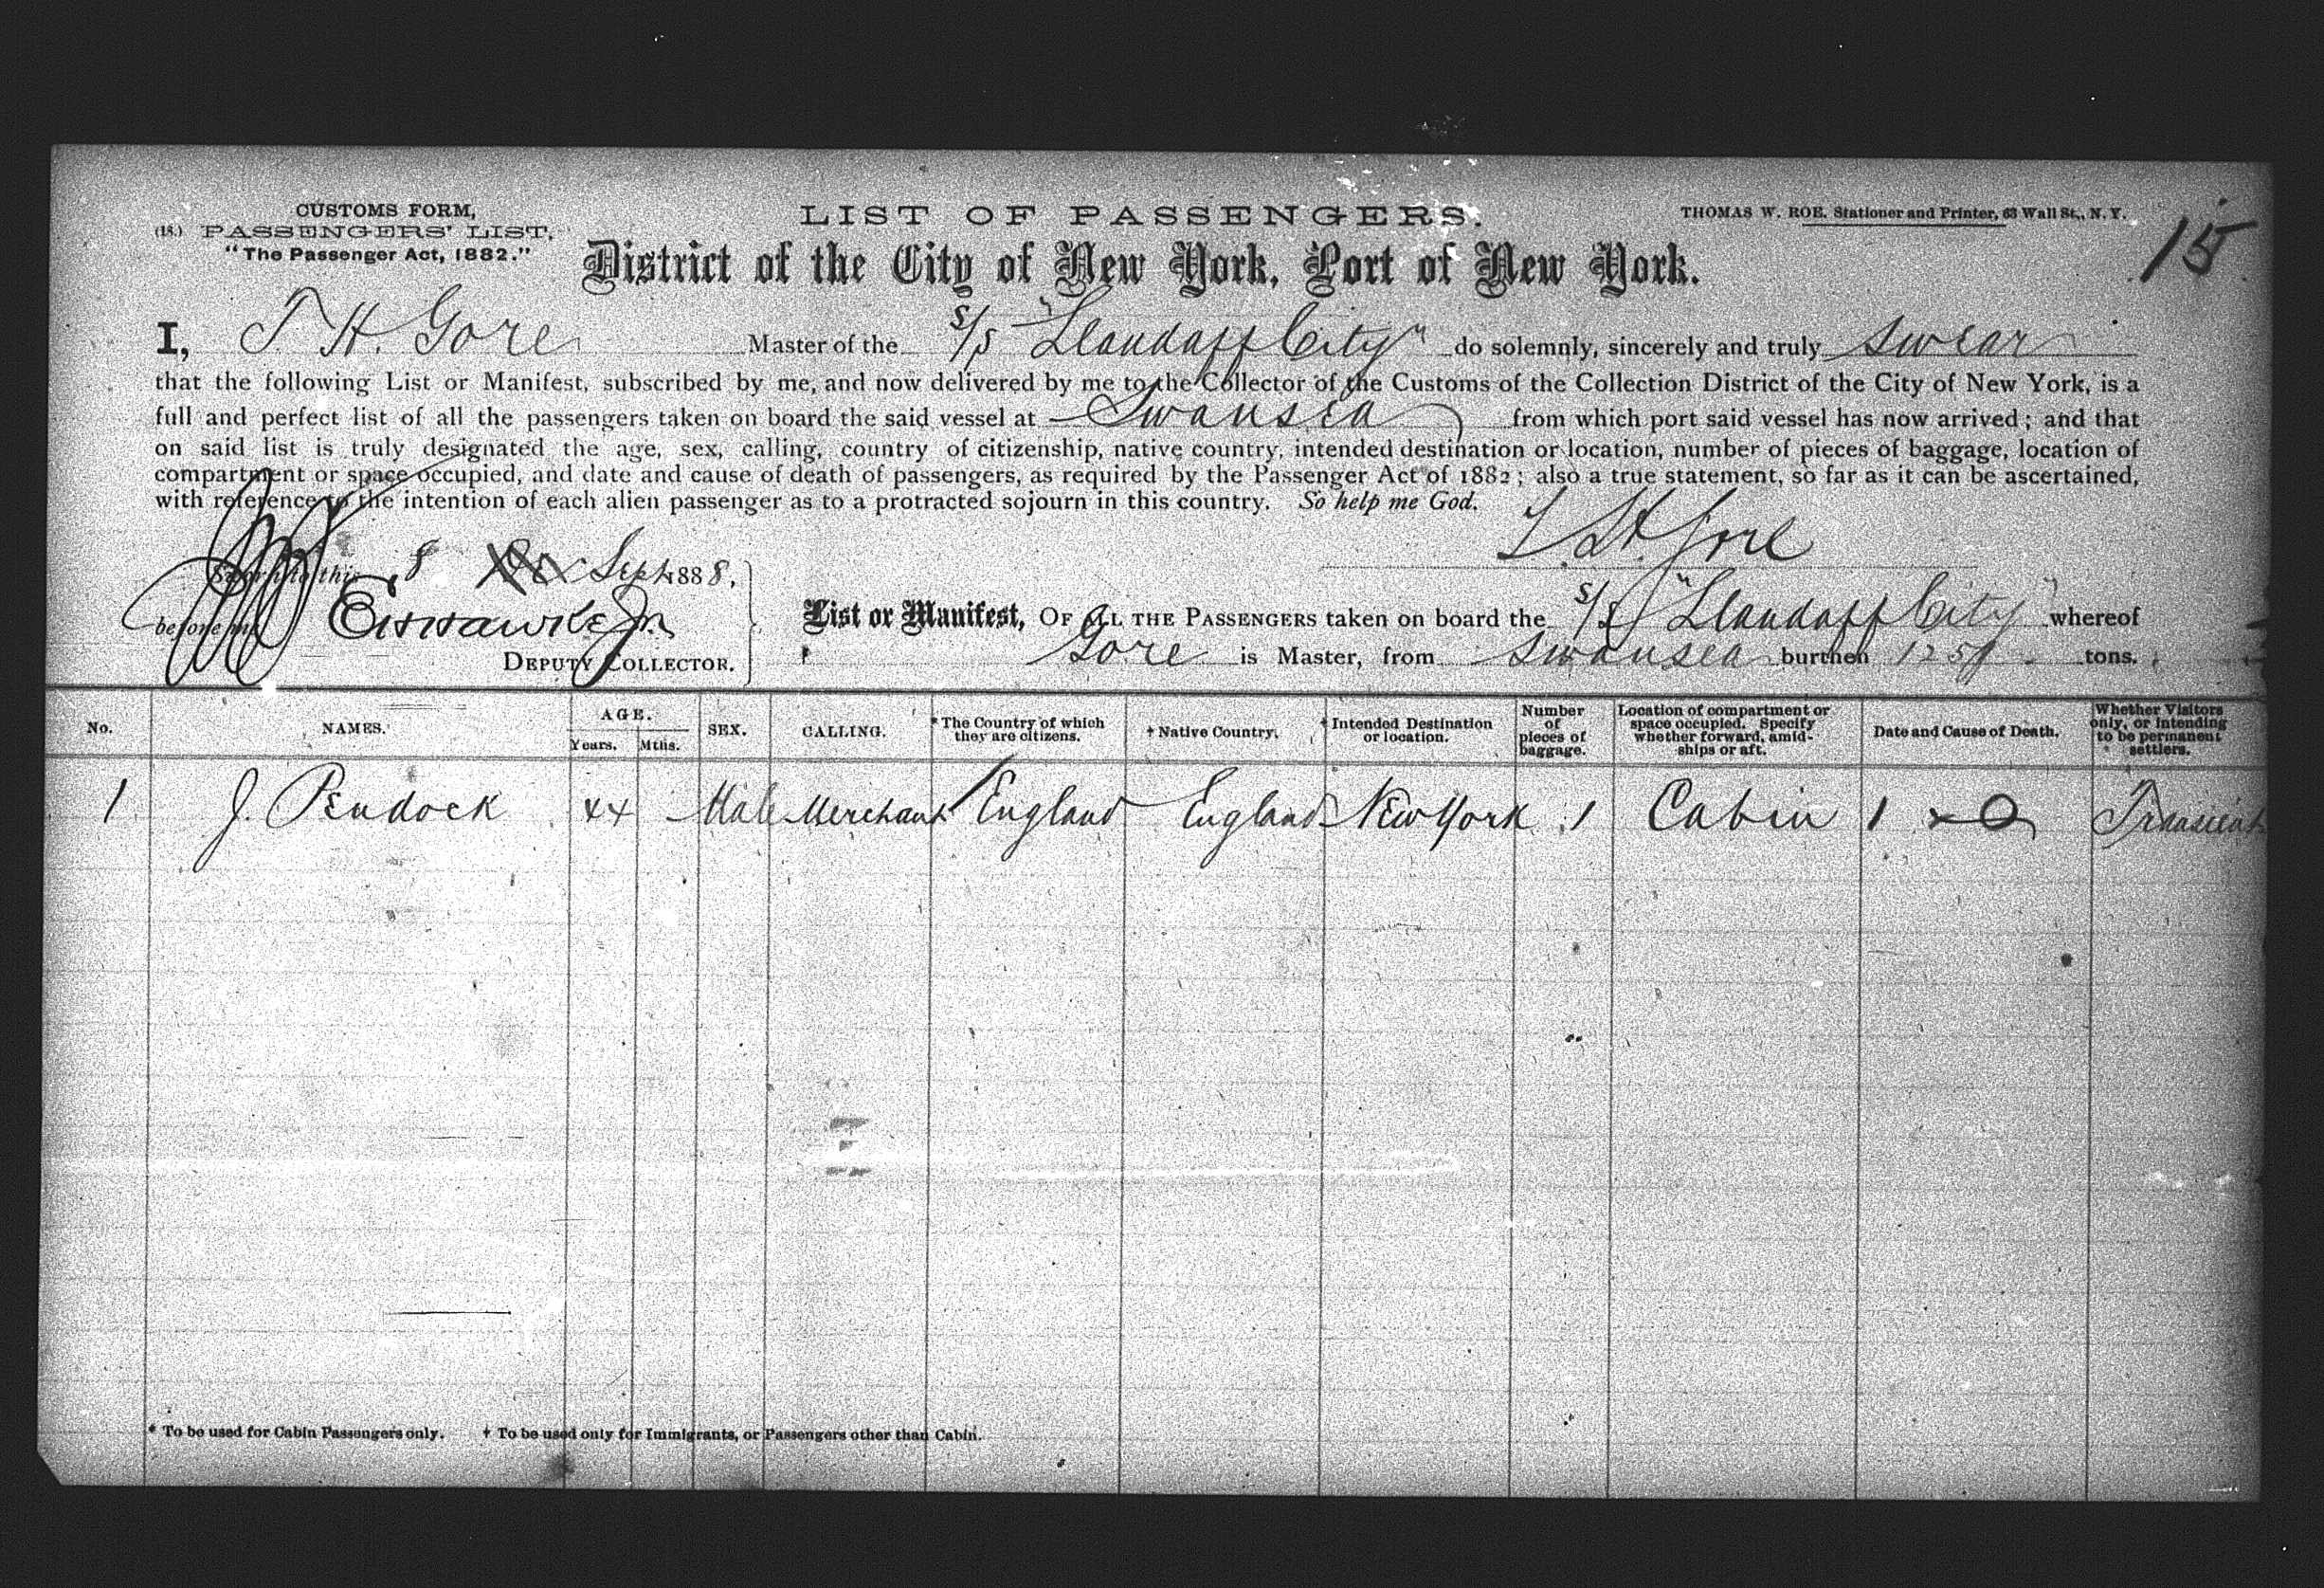 CUSTOMS FORM,
(18.) PASSENGERS' LIST.
"The Passenger Act, 1882."
LIST OF PASSENGERS.
THOMAS W. ROE, Stationer and Printer, 63 Wall St., N. Y.
15
District of the City of New York, Port of New York.
I, T. H. Gore Master of the S/S "Llandaff City" do solemnly, sincerely and truly swear
that the following List or Manifest, subscribed by me, and now delivered by me to the Collector of the Customs of the Collection District of the City of New York, is a
full and perfect list of all the passengers taken on board the said vessel at Swansea from which port said vessel has now arrived; and that
on said list is truly designated the age, sex, calling, country of citizenship, native country, intended destination or location, number of pieces of baggage, location of
compartment or space occupied, and date and cause of death of passengers, as required by the Passenger Act of 1882; also a true statement, so far as it can be ascertained,
with reference to the intention of each alien passenger as to a protracted sojourn in this country. So help me God.
T. H. Gore
Sworn to this 8 Sept 1888,
before me
DEPUTY COLLECTOR.
List or Manifest, OF ALL THE PASSENGERS taken on board the S/S "Llandaff City" whereof
Gore is Master, from Swansea burthen tons.
No. NAMES. AGE. Years. Mths. SEX. CALLING. * The Country of which they are citizens. † Native Country. † Intended Destination or location. Number of pieces of baggage. Location of compartment or space occupied. Specify whether forward, amidships or aft. Date and Cause of Death. Whether Visitors only, or intending to be permanent settlers.
1 J. Pendock xx Male Merchant England England New York 1 Cabin 1 x Transient
* To be used for Cabin Passengers only. † To be used only for Immigrants, or Passengers other than Cabin.